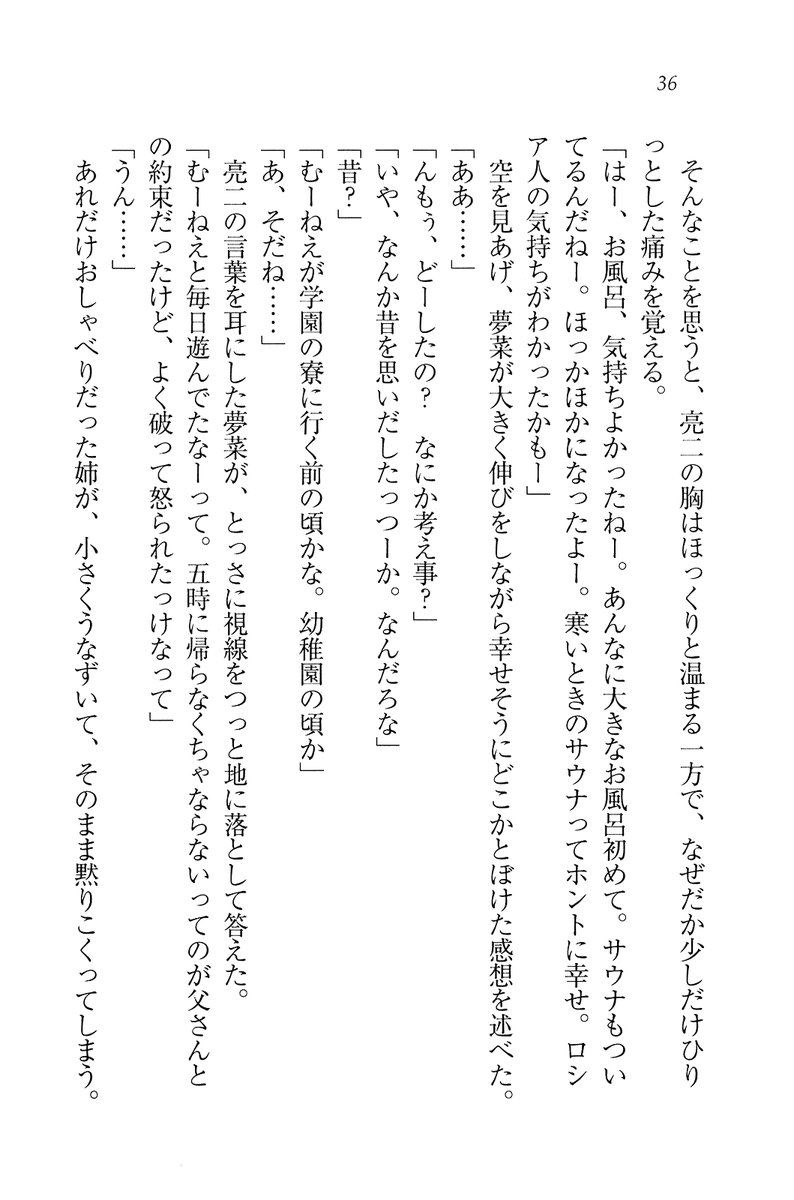 36
そんなことを思うと、亮二の胸はほっくりと温まる一方で、なぜだか少しだけひり
っとした痛みを覚える。
「はー、お風呂、気持ちよかったねー。あんなに大きなお風呂初めて。サウナもつい
てるんだねー。ほっかほかになったよー。寒いときのサウナってホントに幸せ。ロシ
ア人の気持ちがわかったかもー」
空を見あげ、夢菜が大きく伸びをしながら幸せそうにどこかとぼけた感想を述べた。
「ああ……」
「んもぅ、どーしたの？　なにか考え事？」
「いや、なんか昔を思いだしたっつーか。なんだろな」
「昔？」
「むーねえが学園の寮に行く前の頃かな。幼稚園の頃か」
「あ、そだね……」
亮二の言葉を耳にした夢菜が、とっさに視線をつっと地に落として答えた。
「むーねえと毎日遊んでたなーって。五時に帰らなくちゃならないってのが父さんと
の約束だったけど、よく破って怒られたっけなって」
「うん……」
あれだけおしゃべりだった姉が、小さくうなずいて、そのまま黙りこくってしまう。